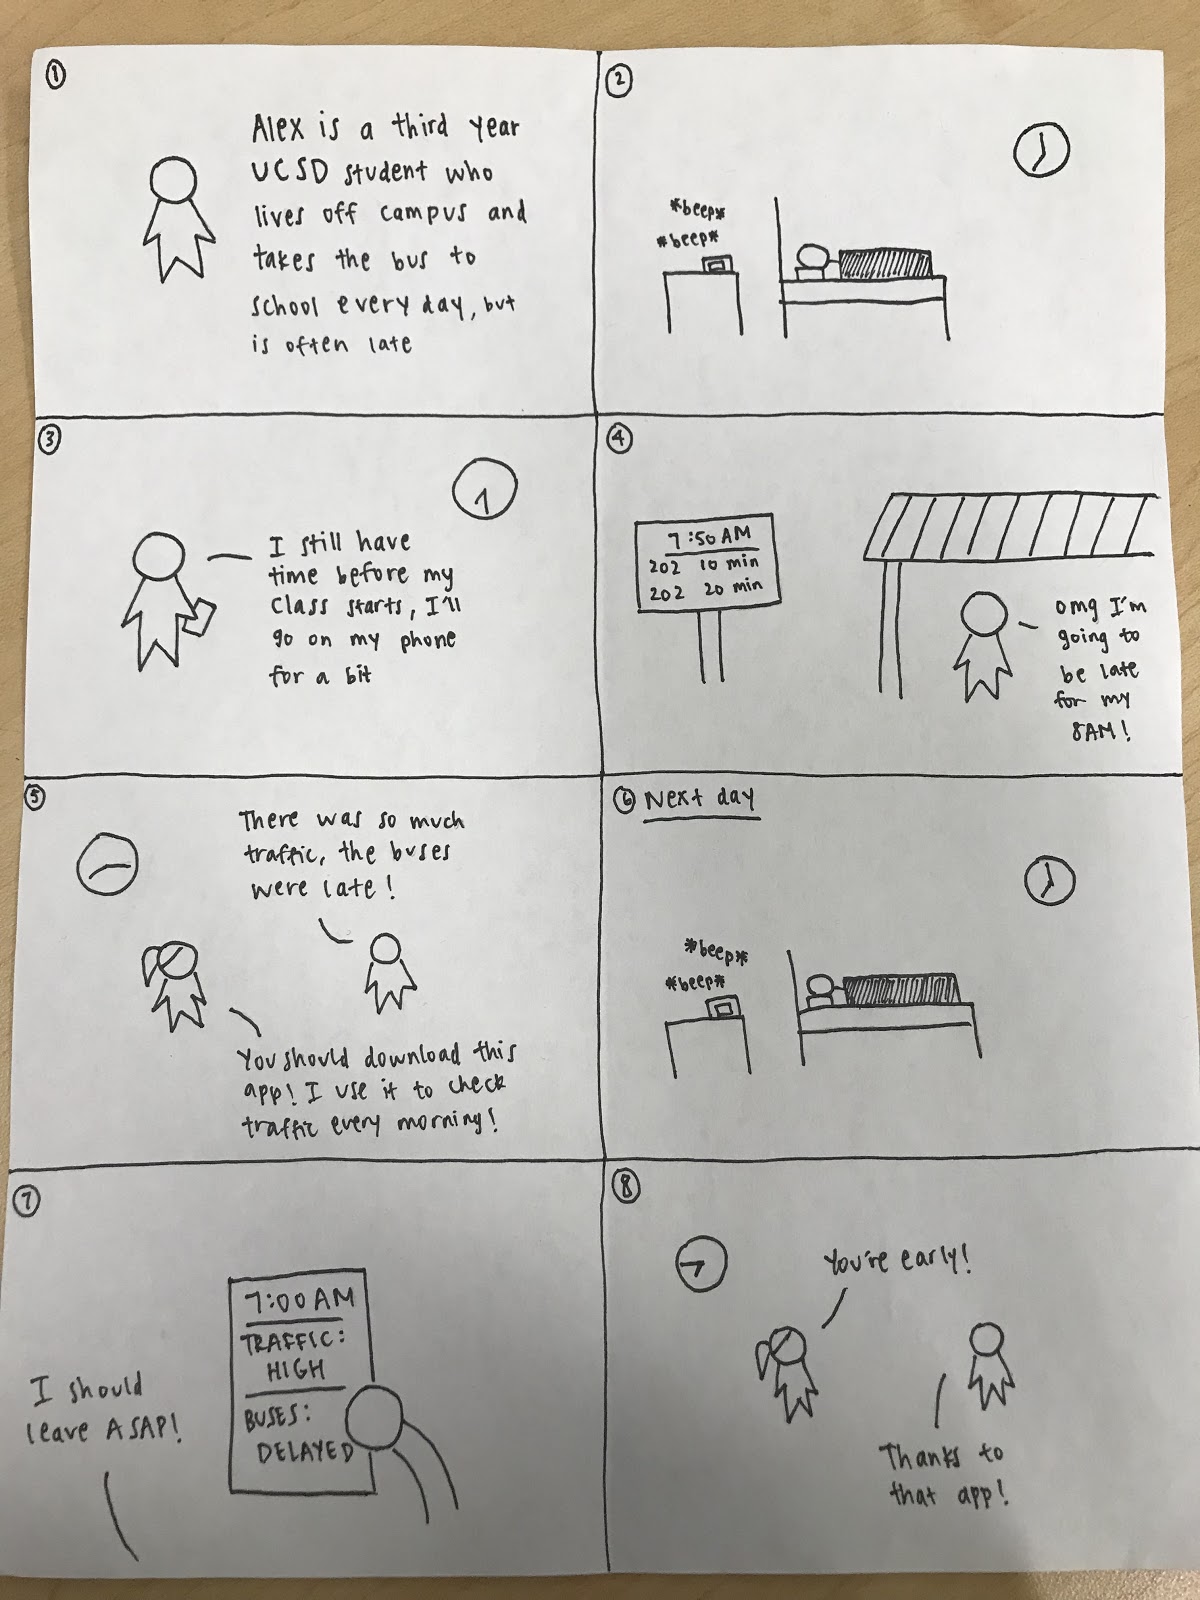 1
Alex is a third year
UCSD student who
lives off campus and
takes the bus to
school every day, but
is often late
2
*beep*
*beep*
3
I still have
time before my
class starts, I'll
go on my phone
for a bit
4
7:50 AM
202 10 min
202 20 min
omg I'm
going to
be late
for my
8AM!
5
There was so much
traffic, the buses
were late!
You should download this
app! I use it to check
traffic every morning!
6 Next day
*beep*
*beep*
7
7:00 AM
TRAFFIC:
HIGH
BUSES:
DELAYED
I should
leave ASAP!
8
You're early!
Thanks to
that app!